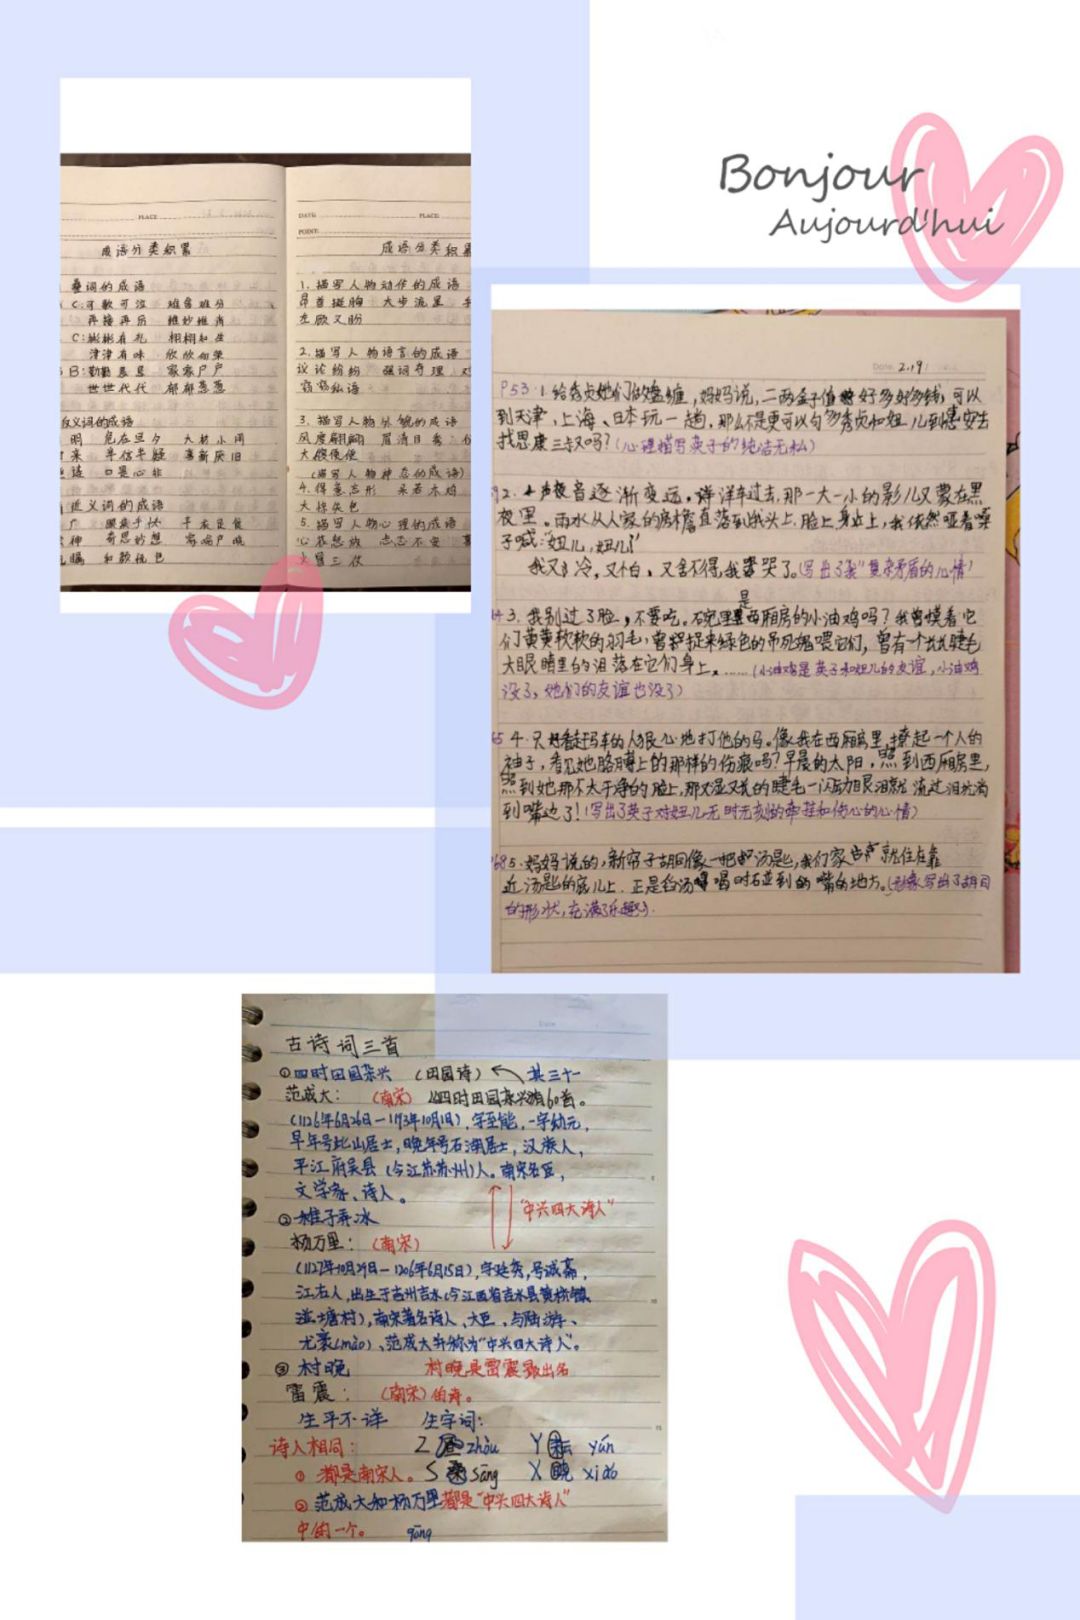 Bonjour
Aujourd'hui
PLACE
成语分类积累
叠词的成语
C:可歌可泣 难舍难分
再接再厉 惟妙惟肖
C:彬彬有礼 栩栩如生
津津有味 欣欣向荣
B:勤勤恳恳 家家户户
世世代代 郁郁葱葱
反义词的成语
明 危在旦夕 大材小用
来 半信半疑 喜新厌旧
口是心非
近义词的成语
广 眼疾手快 丰衣足食
神 奇思妙想 家喻户晓
和颜悦色
DATE: PLACE:
POINT:
成语分类积累
1.描写人物动作的成语
昂首挺胸 大步流星
左顾又盼
2.描写人物语言的成语
议论纷纷 强词夺理
窃窃私语
3.描写人物外貌的成语
风度翩翩 眉清目秀
大腹便便
(描写人物神态的成语)
4.得意忘形 呆若木鸡
大惊失色
5.描写人物心理的成语
心花怒放 忐忑不安
Date. 2.19
P53·1.给秀贞她们做盘缠,妈妈说,二两金子值好多好多钱,可以
到天津、上海、日本玩一趟,那么不是更可以句多秀贞和妞儿到惠安去
找思康三叔吗?(心理描写英子的纯洁无私)
2. 声音逐渐变远,洋车过去,那一大一小的影儿又蒙在黑
夜里。雨水从人家的房檐直落到我头上、脸上、身上,我依然哑着嗓
子喊:“妞儿,妞儿!”
我又冷,又怕,又舍不得,我哭了。(写出了英子复杂矛盾的心情)
3.我别过了脸,不要吃。碗里是西厢房的小油鸡吗?我曾摸着它
们黄黄软软的羽毛,曾捉来绿色的吊死鬼喂它们,曾有一长长睫毛
大眼睛里的泪落在它们身上。……(小油鸡是英子和妞儿的友谊,小油鸡
没了,她们的友谊也没了)
4.只好看赶马车的人狠心地打他的马。像我在西厢房里,撩起一个人的
袖子,看见她胳膊上的那样的伤痕吗?早晨的太阳,照到西厢房里,
照到她那不太干净的脸上,那又湿又长的睫毛一闪动,眼泪就流过泪坑淌
到嘴边了!(写出了英子对妞儿无时无刻的牵挂和伤心的心情)
5.妈妈说的,新帘子胡同像一把汤匙,我们家就住在靠
近汤匙的底儿上,正是舀汤喝时碰到的嘴的地方。(形象写出了胡同
的形状,充满了乐趣)
Date
古诗词三首
①四时田园杂兴 (田园诗) 其三十一
范成大: (南宋) 四时田园杂兴有60首。
(1126年6月26日—1193年10月1日),字至能,一字幼元,
早年号此山居士,晚年号石湖居士,汉族人,
平江府吴县(今江苏苏州)人。南宋名臣,
文学家、诗人。
“中兴四大诗人”
②稚子弄冰
杨万里: (南宋)
(1127年10月29日—1206年6月15日),字廷秀,号诚斋,
江右人,出生于吉州吉水(今江西省吉水县黄桥镇
湴塘村),南宋著名诗人、大臣,与陆游、
尤袤(mào)、范成大并称为“中兴四大诗人”。
③村晚 村晚是雷震最出名
雷震: (南宋) 的诗。
生平不详 生字词:
诗人相同: Z 昼 zhòu Y 耘 yún
①都是南宋人。 S 桑 sāng X 晓 xiǎo
②范成大和杨万里都是“中兴四大诗人”
中的一个。 gōng